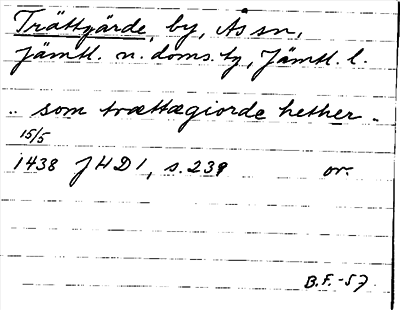 Trättgärde, by, As sn,
Jämtl. n. doms. tg, Jämtl. l.
.. som trættægiorde hether.
15/5
1438 JHD 1, s. 239 or.
B.F. -57